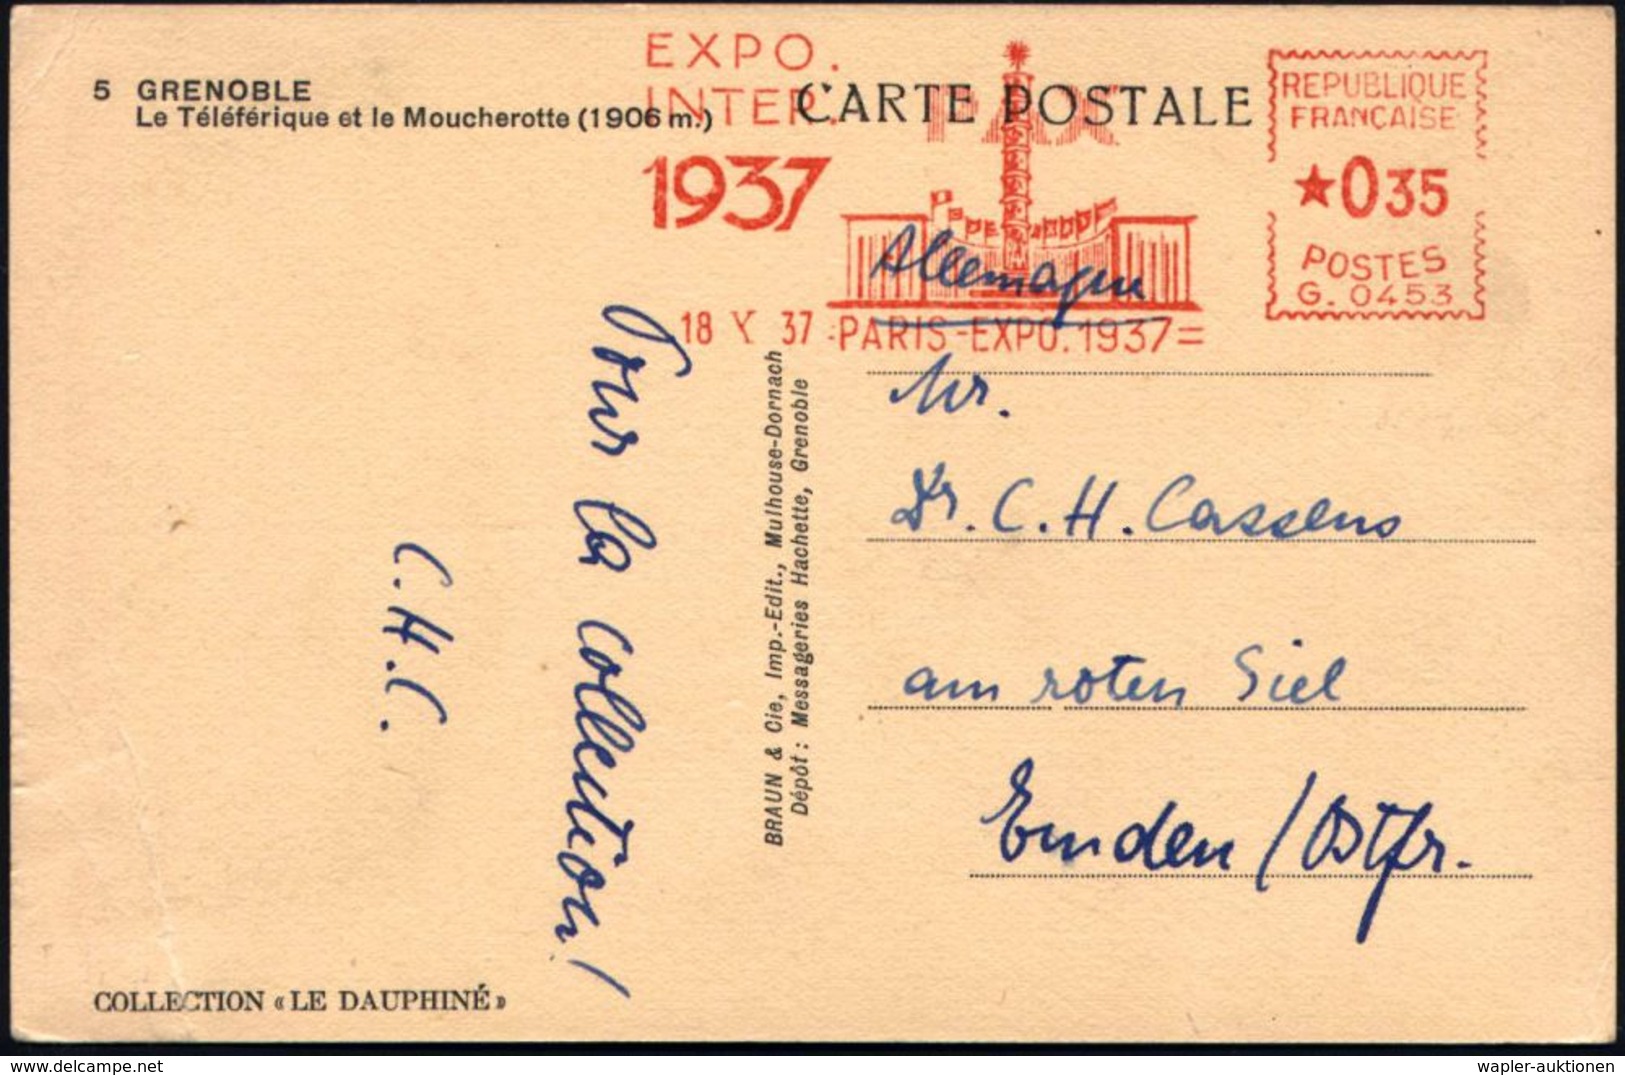 5 GRENOBLE
Le Téléférique et le Moucherotte (1906 m.)
EXPO.
INTER.
1937
CARTE POSTALE
PAX
REPUBLIQUE
FRANÇAISE
★035
POSTES
G. 0453
18 X 37 =PARIS-EXPO.1937=
Allemagne
Mr.
Dr. C. H. Cassens
am roten Siel
Emden / Ostfr.
BRAUN & Cie, Imp.-Edit., Mulhouse-Dornach
Dépôt : Messageries Hachette, Grenoble
Pour la collection!
C.H.C.
COLLECTION « LE DAUPHINÉ »
wapler-auktionen